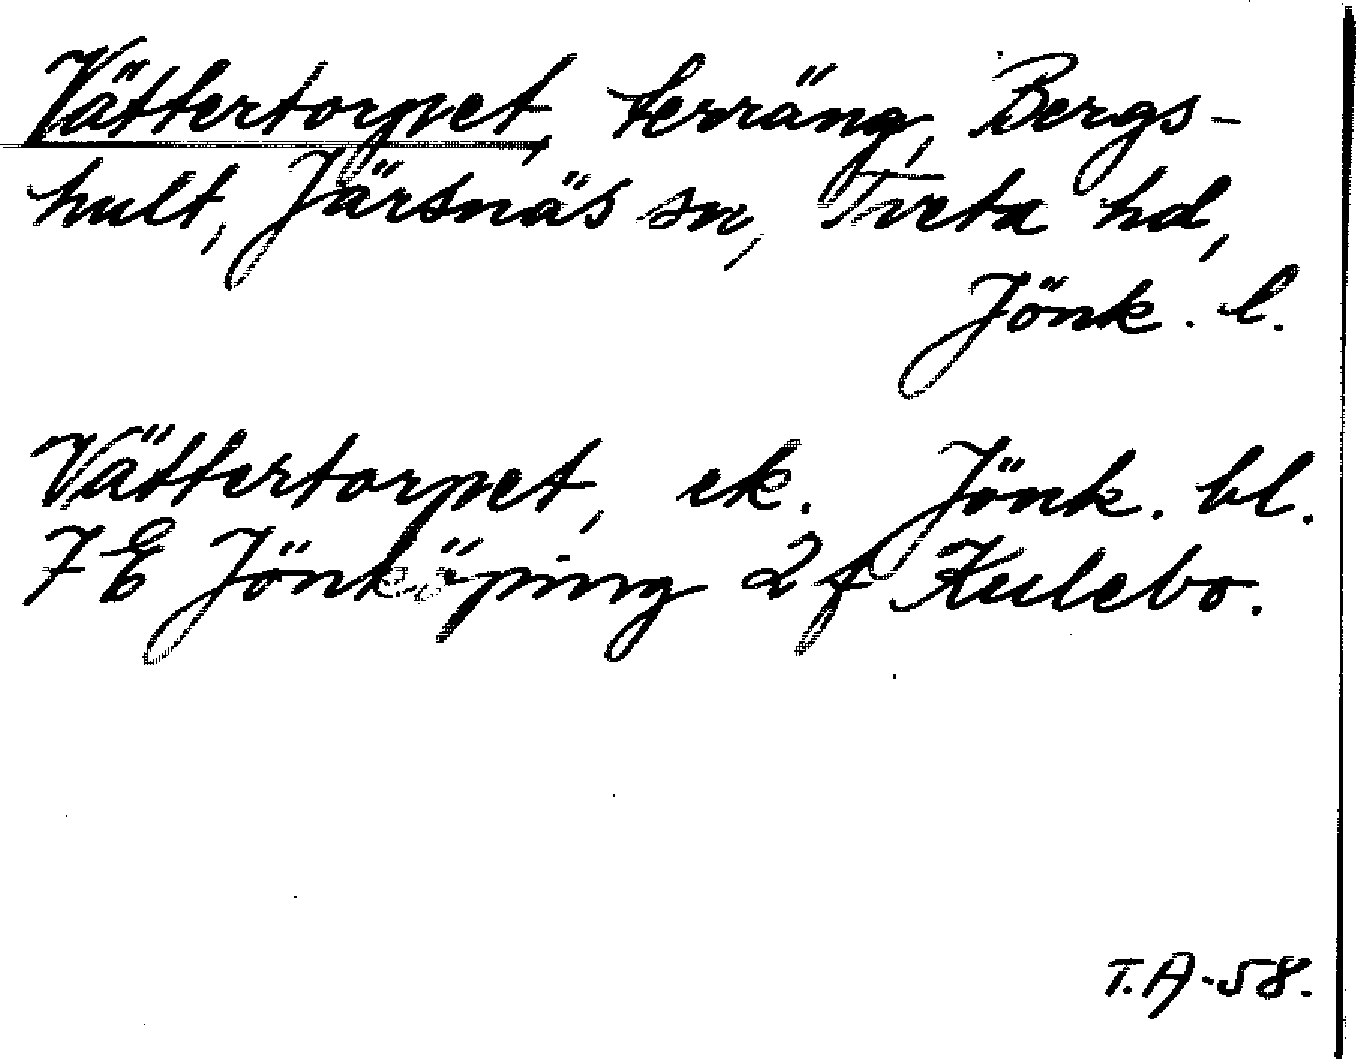 Vättertorpet, terräng, Bergs-
hult, Järsnäs sn, Tveta hd,
Jönk. l.
Vättertorpet, ek. Jönk. bl.
7E Jönköping 2f Kulebo.
T.A-58.